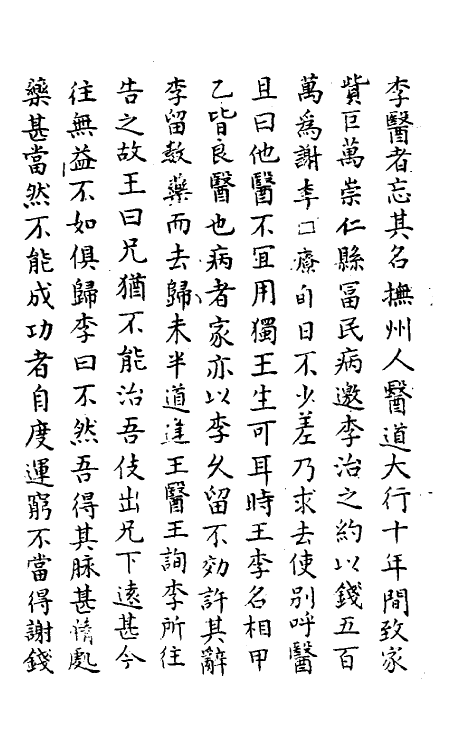 李醫者忘其名撫州人醫道大行十年間致家
貲巨萬崇仁縣冨民病邀李治之約以錢五百
萬爲謝李口療旬日不少差乃求去使別呼醫
且曰他醫不宜用獨王生可耳時王李名相甲
乙皆良醫也病者家亦以李久留不効許其辭
李留數藥而去歸未半道逢王醫王詢李所往
告之故王曰兄猶不能治吾伎出兄下逺甚今
往無益不如俱歸李曰不然吾得其脉甚情處
藥甚當然不能成功者自度運窮不當得謝錢